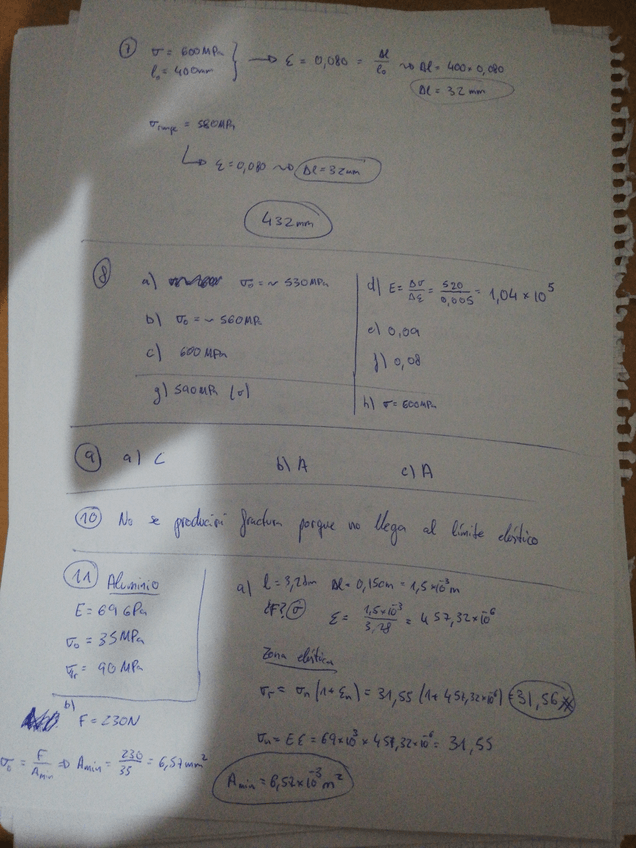 7 σ = 600MPa
l₀ = 400mm } → ε = 0,080 = Δl/l₀ ⇝ Δl = 400 × 0,080
Δl = 32 mm
= 580MPa
↳ ε = 0,080 ⇝ Δl = 32mm
432mm
8 a) σ₀ = ~ 530MPa
b) σ₀ = ~ 560MPa
c) 600MPa
g) 590MPa (σ)
d) E = Δσ/Δε = 520/0,005 = 1,04 × 10⁵
e) 0,09
f) 0,08
h) σ = 600MPa
9 a) C b) A c) A
10 No se producirá fractura porque no llega al límite elástico
11 Aluminio
E = 69GPa
σ₀ = 35MPa
σr = 90MPa
a) l = 3,28m Δl = 0,15cm = 1,5×10⁻³m
¿F? σ ε = 1,5×10⁻³/3,28 = 457,32×10⁻⁶
Zona elástica
σr = σn (1+εn) = 31,55 (1 + 457,32×10⁻⁶) = 31,56
σn = E ε = 69×10³ × 457,32×10⁻⁶ = 31,55
b) F = 230N
σ₀ = F/Amin ⇒ Amin = 230/35 = 6,57mm²
Amin = 6,57×10⁻³m²